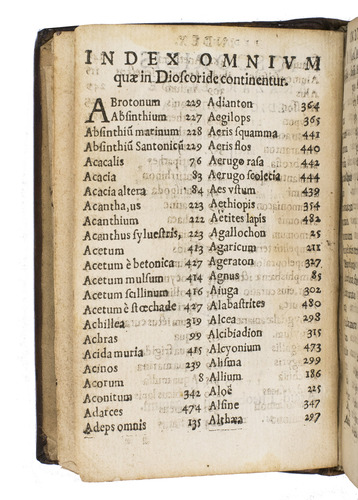 INDEX OMNIVM
quæ in Dioscoride continentur.
ABrotonum 229
Absinthium 227
Absinthiũ marinum 228
Absinthiũ Santonicũ 229
Acacalis 76
Acacia 83
Acacia altera 84
Acantha, us 223
Acanthium 222
Acanthus syluestris, 223
Acetum 413
Acetum è betonica 427
Acetum mulsum 414
Acetum scillinum 416
Acetum è stœchade 427
Achillea 319
Achras 99
Acida muria 415
Acinos 239
Acorum 8
Aconitum 342
Adarces 474
Adeps omnis 135
Adianton 364
Aegilops 365
Aeris squamma 441
Aeris flos 440
Aerugo rasa 442
Aerugo scolecia 444
Aes vstum 439
Aethiopis 354
Aëtites lapis 482
Agallochon 25
Agaricum 211
Ageraton 327
Agnus 85
Aiuga 302
Alabastrites 480
Alcea 298
Alcibiadion 315
Alcyonium 473
Alisma 299
Allium 186
Aloë 225
Alsine 347
Althæa 297